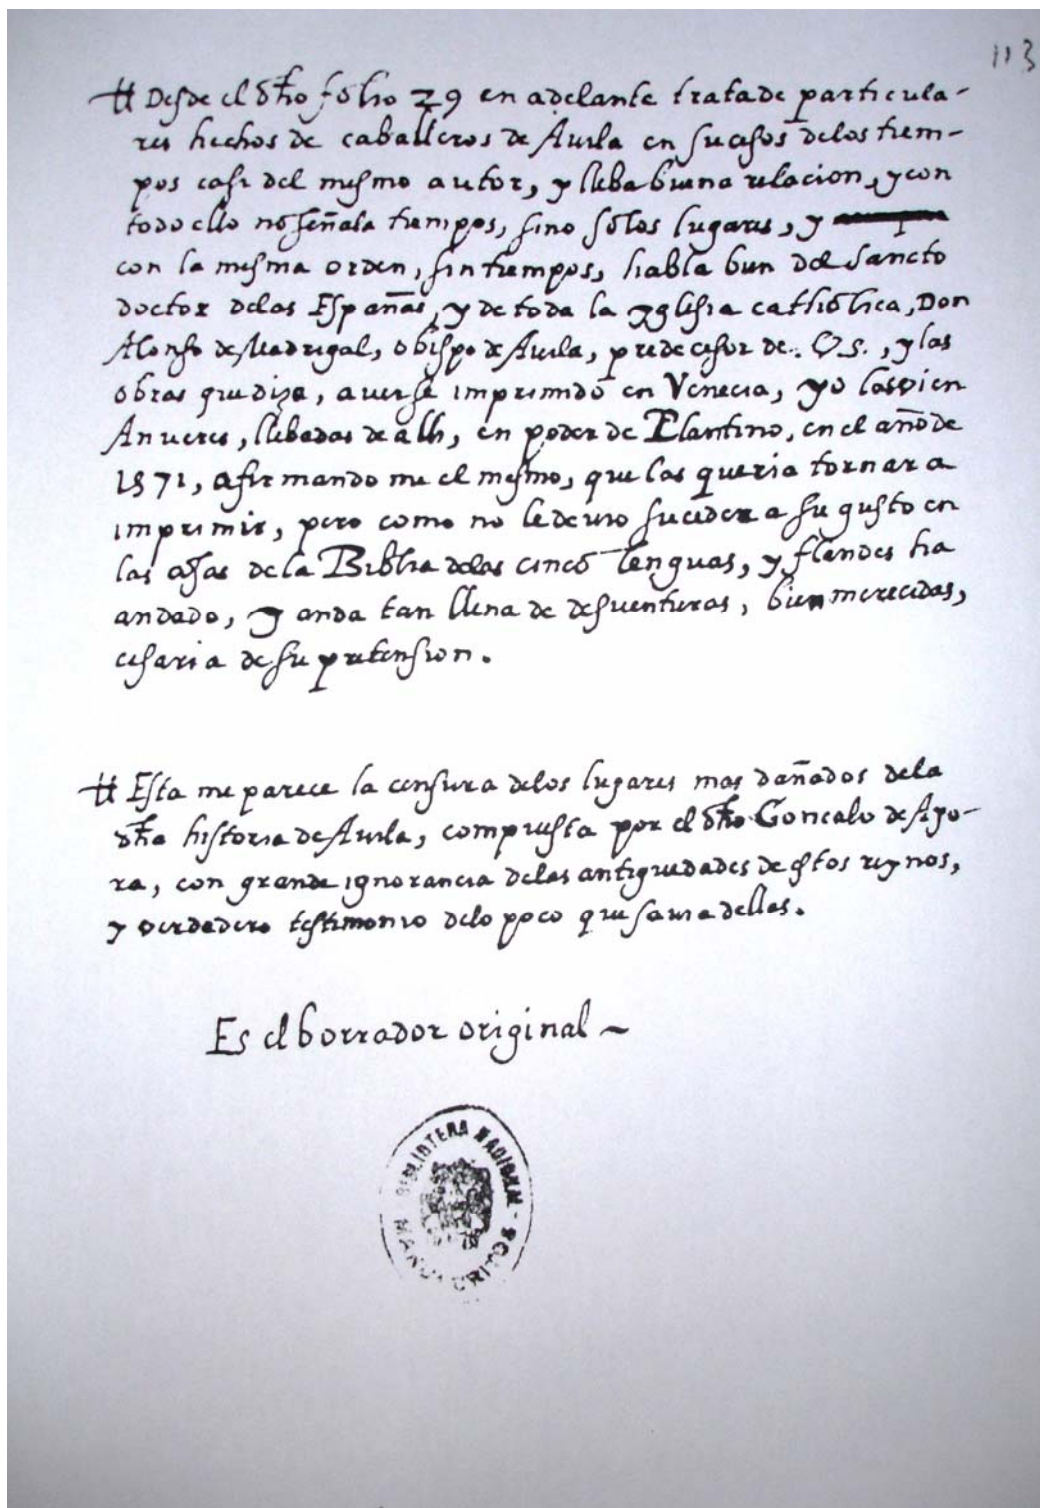 113
# Desde el dho folio 29 en adelante trata de particula-
res hechos de caballeros de Auila en sucesos de los tiem-
pos casi del mesmo autor, y lleba buena relacion, y con
todo ello no señala tiempos, sino solos lugares, y
con la mesma orden, sin tiempos, habla bien del sancto
doctor de las Españas, y de toda la yglesia catholica, Don
Alonso de Madrigal, obispo de Auila, predecesor de . V. S. , y las
obras que dize, auerse imprimido en Venecia, yo las vi en
Anueres, llebadas de alli, en poder de Plantino, en el año de
1571, afirmandome el mesmo, que las queria tornar a
imprimir, pero como no le deuio suceder a su gusto en
las de la Biblia de las cinco lenguas, y flandes ha
andado, y anda tan llena de desuenturas, bien merecidas,
cesaria de su pretension.
# Esta me parece la censura de los lugares mas dañados de la
dha historia de Auila, compuesta por el dho Goncalo de Ayo-
ra, con grande ignorancia de las antiguedades destos reynos,
y verdadero testimonio de lo poco que sauia dellas.
Es el borrador original ~
BIBLIOTECA NACIONAL
MANUSCRITOS